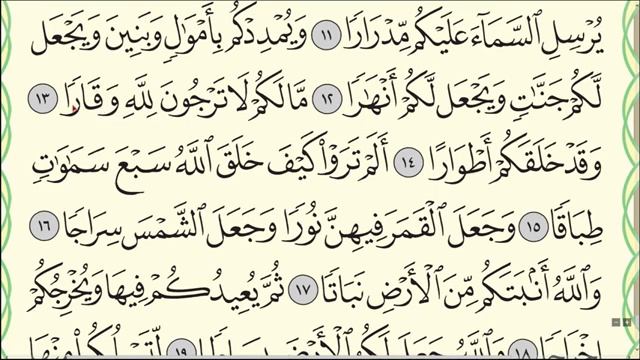 يُرْسِلِ ٱلسَّمَآءَ عَلَيْكُم مِّدْرَارًا ١١ وَيُمْدِدْكُم بِأَمْوَٰلٍ وَبَنِينَ وَيَجْعَل
لَّكُمْ جَنَّٰتٍ وَيَجْعَل لَّكُمْ أَنْهَٰرًا ١٢ مَّا لَكُمْ لَا تَرْجُونَ لِلَّهِ وَقَارًا ١٣
وَقَدْ خَلَقَكُمْ أَطْوَارًا ١٤ أَلَمْ تَرَوْا۟ كَيْفَ خَلَقَ ٱللَّهُ سَبْعَ سَمَٰوَٰتٍ
طِبَاقًا ١٥ وَجَعَلَ ٱلْقَمَرَ فِيهِنَّ نُورًا وَجَعَلَ ٱلشَّمْسَ سِرَاجًا ١٦
وَٱللَّهُ أَنۢبَتَكُم مِّنَ ٱلْأَرْضِ نَبَاتًا ١٧ ثُمَّ يُعِيدُكُمْ فِيهَا وَيُخْرِجُكُمْ
إِخْرَاجًا ١٨ وَٱللَّهُ جَعَلَ لَكُمُ ٱلْأَرْضَ بِسَاطًا ١٩ لِّتَسْلُكُوا۟ مِنْهَا